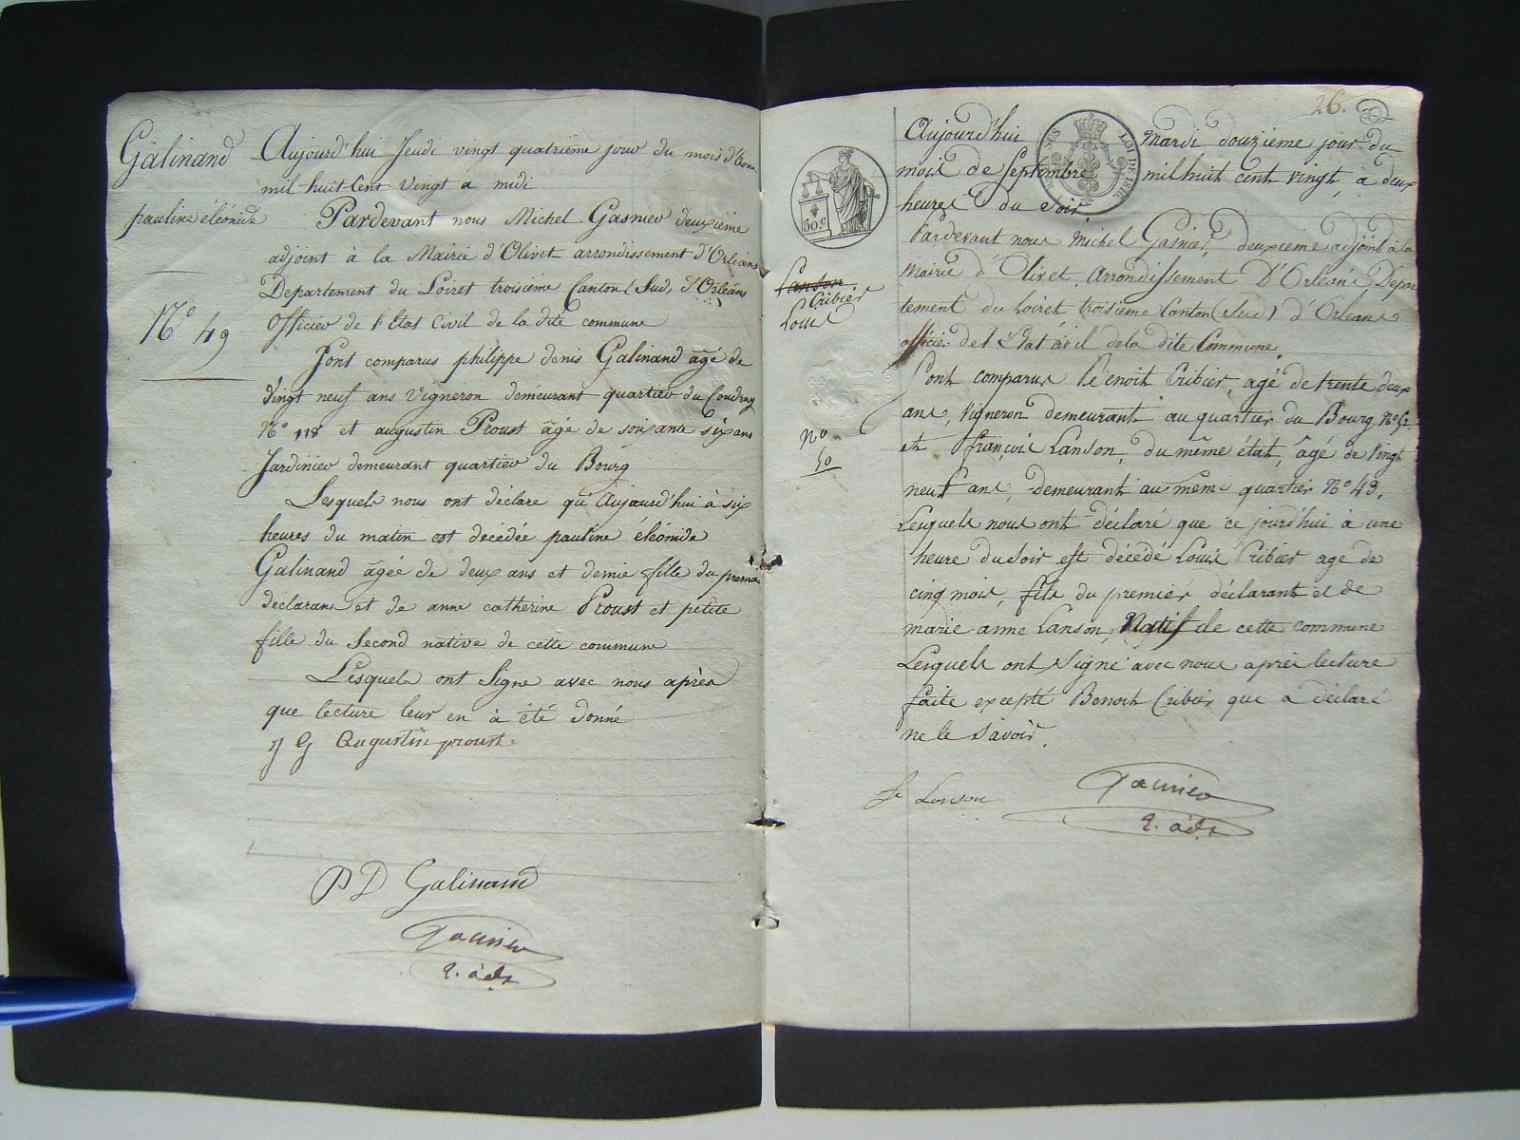 Galinand
pauline éléonide
N.° 49
Aujourd'hui Jeudi vingt quatrième jour du mois d'Aou
mil huit Cent vingt a midi
Pardevant nous Michel Gasnier deuxième
adjoint à la Mairie d'Olivet arrondissement d'Orléans
Departement du Loiret troisième Canton (Sud) d'Orléans
Officier de l'Etat Civil de la dite commune
Sont comparus philippe denis Galinand âgé de
vingt neuf ans vigneron demeurant quartier du Coudray
N.° 118 et augustin Proust âgé de soixante six ans
Jardinier demeurant quartier du Bourg
Lesquels nous ont déclare qu'Aujourd'hui à six
heures du matin est décédée pauline éléonide
Galinand âgée de deux ans et demie fille du premier
declarant et de anne catherine Proust et petite
fille du Second native de cette commune
Lesquels ont Signe avec nous après
que lecture leur en à été donné
Augustin proust
P D Galinand
Gasnier
2. adt
26.
50 c
Lanson
Cribier
Louis
N°
50
Aujourd'hui mardi douzième jour du
mois de Septembre mil huit cent vingt, a deux
heures du soir.
Pardevant nous Michel Gasnier, deuxième adjoint à la
Mairie d'Olivet, Arrondissement D'Orléans Depar
tement du Loiret troisième Canton (Sud) d'Orléans
officier de l'Etat civil de la dite Commune.
Sont comparus Benoit Cribier, agé de trente deux
ans, vigneron demeurant au quartier du Bourg
et françois Lanson, du même état, âgé de vingt
neuf ans, demeurant au même quartier N° 49.
Lesquels nous ont déclaré que ce jourd'hui à une
heure du soir est décédé Louis Cribier agé de
cinq mois, fils du premier déclarant et de
marie anne Lanson, Natif de cette commune
Lesquels ont signé avec nous après lecture
faite excepté Benoit Cribier que a déclaré
ne le savoir.
fr Lanson
Gasnier
2. adt